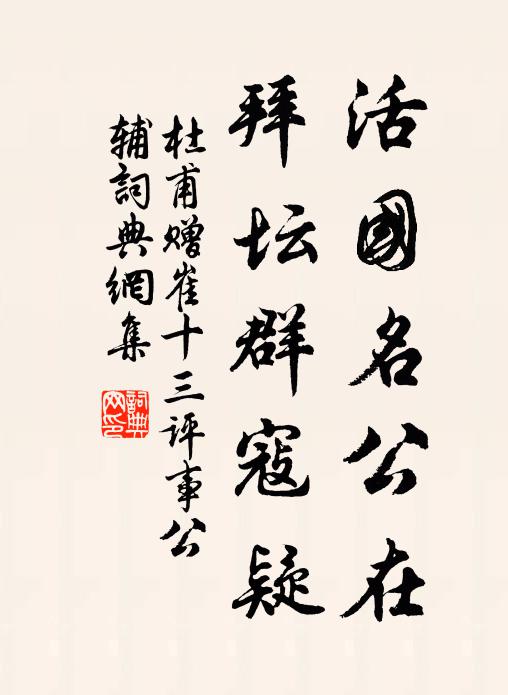 活國名公在
拜坛群寇疑
杜甫赠崔十三评事公
辅詞典網集
詞典网印